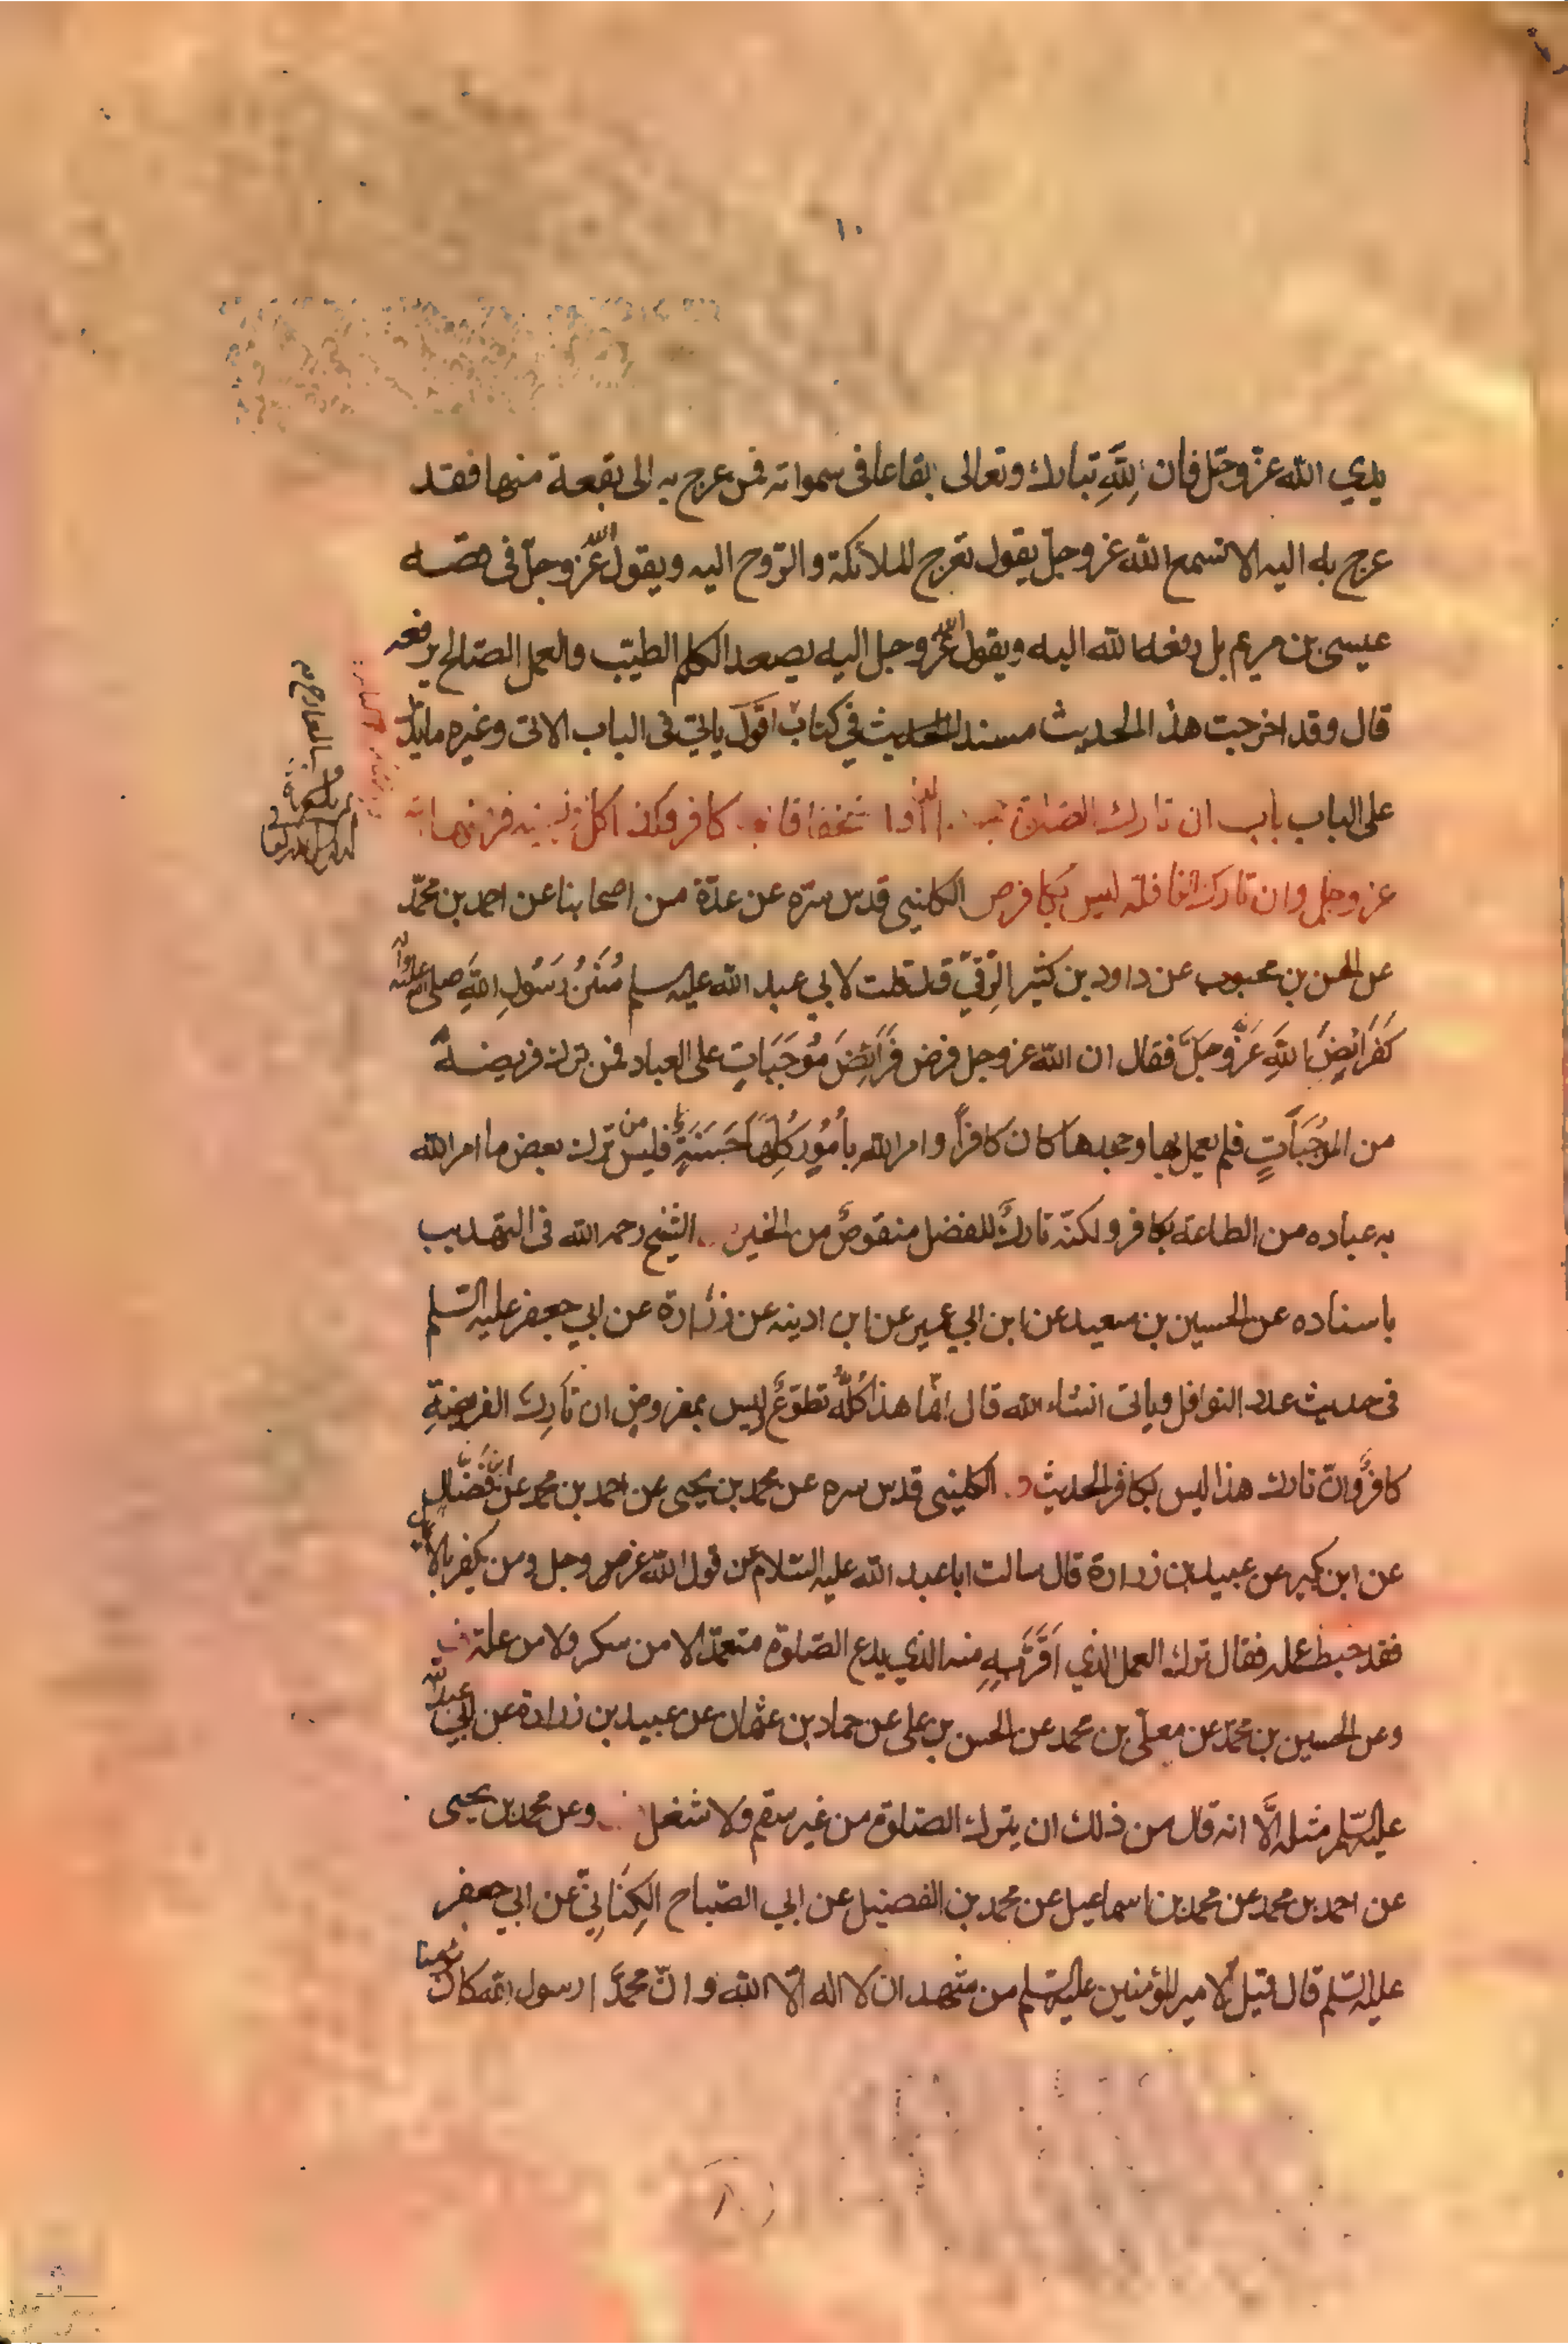 ١٠
يدي الله عزّ وجلّ فان لِلّهِ تبارك وتعالى بقاعا فى سمواته فمن عرج به الى بقعة منها فقد
عرج به اليه الا تسمع الله عز وجلّ يقول تعرج الملائكة والرّوح اليه ويقول الله عَزّ وجلّ فى قصّه
عيسى بن مريم بل رفعه الله اليه ويقول الله عزّ وجل اليه يصعد الكلم الطيّب والعمل الصّالح يرفعه
قال وقد اخرجت هذا الحديث مسندا فى كتاب اقول ياتى فى الباب الاتى وغيره ما يدلّ
على الباب باب ان تارك الصلوة كافر وكذا كل
عز وجل وان تارك النافلة ليس بكافر ص الكلينى قدس سّره عن عدّة من اصحابنا عن احمد بن محمّد
عن الحسن بن محبوب عن داود بن كثير الرّقيّ قال قلت لابي عبد الله عليه سلم سُنَنُ رَسُولِ اللهِ صلى الله عليه وآله
كَفَرَائِضِ اللهِ عَزَّ وجَلَّ فقال ان الله عز وجل فرض فَرَائِضَ مُوجَبَاتٍ على العباد فمن ترك فريضةً
من الموُجَبَاتٍ فلم يعمل بها وجحدها كان كافراً وامر الله بأُمُورٍ كُلِّهَا حَسَنَةٍ فليس من ترك بعض ما امر الله
به عباده من الطاعة بكافر ولكنّه تاركٌ للفضل منقوصٌ من الخير الشيخ رحمه الله فى التهذيب
باسناده عن الحسين بن سعيد عن ابن ابي عمير عن ابن اذينه عن زرارة عن ابي جعفر عليه السّلم
فى حديث عدد النوافل وياتى انشاء الله قال انّما هذا كُلُّهُ تطوّعٌ وليس بمفروض ان تَارِك الفريضةِ
كافرٌ وانّ تارك هذا ليس بكافر الحديث الكلينى قدس سره عن محمد بن يحيى عن احمد بن محمد عن ابن فَضّال
عن ابن بكير عن عبيد بن زرارة قال سالت ابا عبد الله عليه السّلام عن قول الله عز وجل ومن يكفر بالايمان
فقد حبط عمله فقال ترك العمل الذي اَقَرَّ بِهِ منه الذي يدع الصّلوة متعمّدا لا من سكر ولا من علة
وعن الحسين بن محمّد عن معلّى بن محمد عن الحسن بن على عن حماد بن عثمان عن عبيد بن زرارة عن ابي عبد الله
عليه السّلم مثله الَّا انه قال من ذلك ان يترك الصّلوة من غير سقم ولا شغل وعن محمد بن يحيى
عن احمد بن محمد عن محمد بن اسماعيل عن محمد بن الفضيل عن ابي الصّباح الكِنَانِيّ عن ابي جعفر
عليه السّلم قال قيل لامير المؤمنين عليه السّلم من شهد ان لا اله الّا الله وانّ محمّدًا رسول الله كان مؤمنا